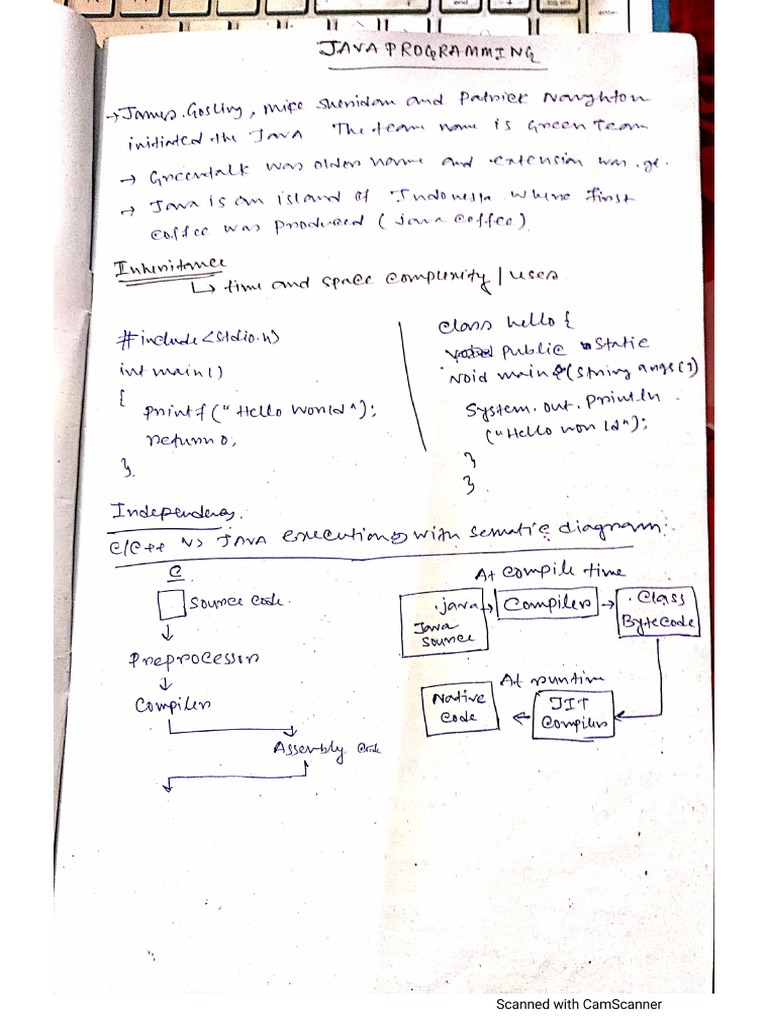 JAVA PROGRAMMING
→ James Gosling, Mike Sheridan and Patrick Naughton
initiated the Java The team name is Green Team
→ Greentalk was older name and extension was .gt.
→ Java is an island of Indonesia where first
coffee was produced (java coffee).
Inheritance
↳ time and space complexity / uses
#include <stdio.h>
int main()
{
printf("Hello World");
return 0;
}.
class hello {
public static
void main (String args[])
System.out.println
("Hello world");
}
}.
Independency.
C/C++ vs JAVA execution with sematic diagram:
C
source code.
↓
Preprocessor
↓
Compiler
Assembly code
At compile time
.java
Java
source
→ Compiler →
.class
Bytecode
At runtime
Native
code
←
JIT
Compiler
Scanned with CamScanner